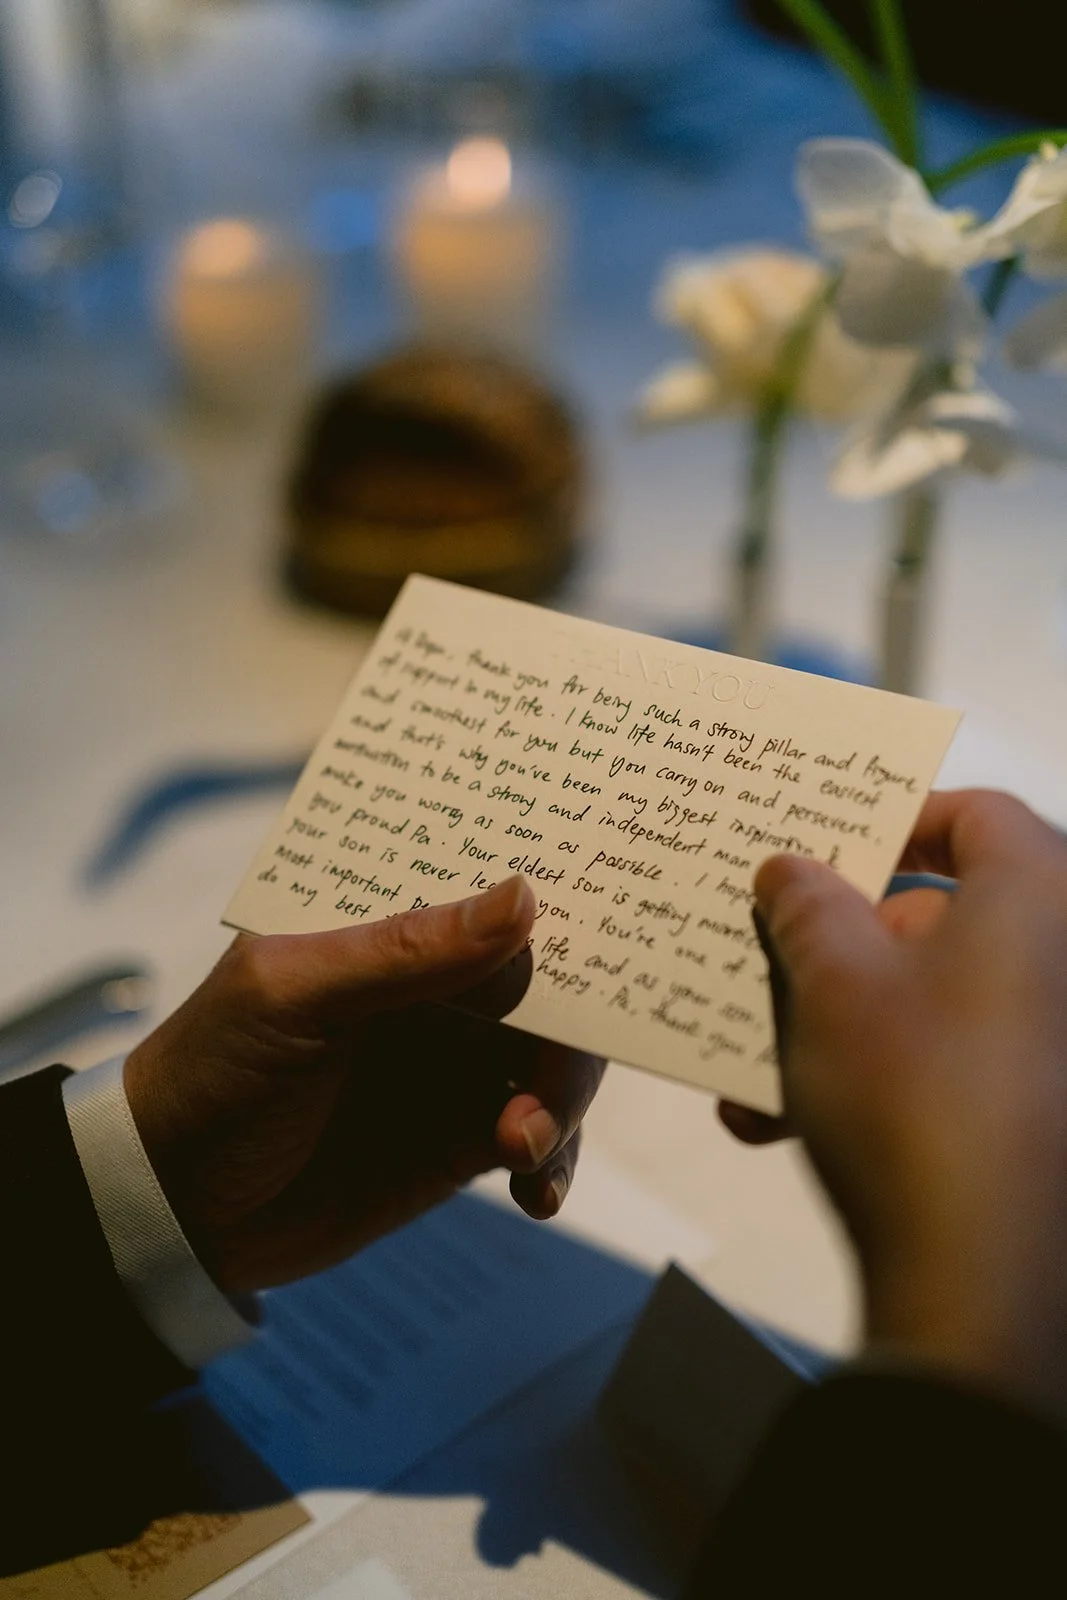 THANK YOU
thank you for being such a strong pillar and figure
of support in my life. I know life hasn't been the easiest
and smoothest for you but you carry on and persevere.
and that's why you've been my biggest inspiration &
motivation to be a strong and independent man
make you worry as soon as possible. I hope
you proud Pa. Your eldest son is getting
your son is never you. You're one of
most important life and as your son,
do my best happy. Pa, thank you